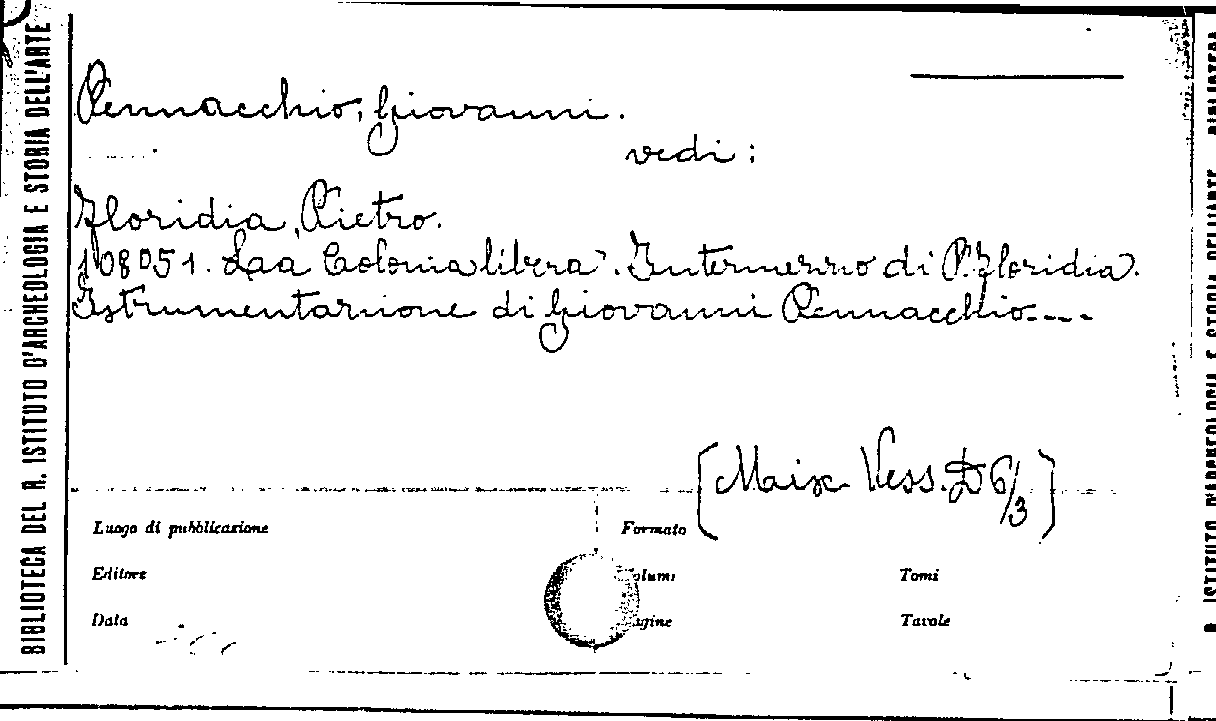 BIBLIOTECA DEL R. ISTITUTO D'ARCHEOLOGIA E STORIA DELL'ARTE
Pennacchio, Giovanni.
vedi:
Floridia, Pietro.
108051. Laa Colonia libera". Intermezzo di P. Floridia.
Istrumentazione di Giovanni Pennacchio----
[Maix Vess. D6/3]
Luogo di pubblicazione
Formato
Editore
Volumi
Tomi
Data
Pagine
Tavole